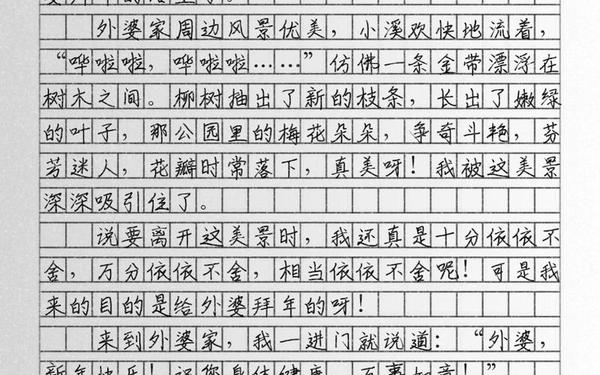 外婆家周边风景优美，小溪欢快地流着，
“哗啦啦，哗啦啦……”仿佛一条金带漂浮在
树木之间。柳树抽出了新的枝条，长出了嫩绿
的叶子，那公园里的梅花朵朵，争奇斗艳，芬
芳迷人，花瓣时常落下，真美呀！我被这美景
深深吸引住了。
说要离开这美景时，我还真是十分依依不
舍，万分依依不舍，相当依依不舍呢！可是我
来的目的是给外婆拜年的呀！
来到外婆家，我一进门就说道：“外婆，
新年快乐！祝您身体健康，万事如意！”